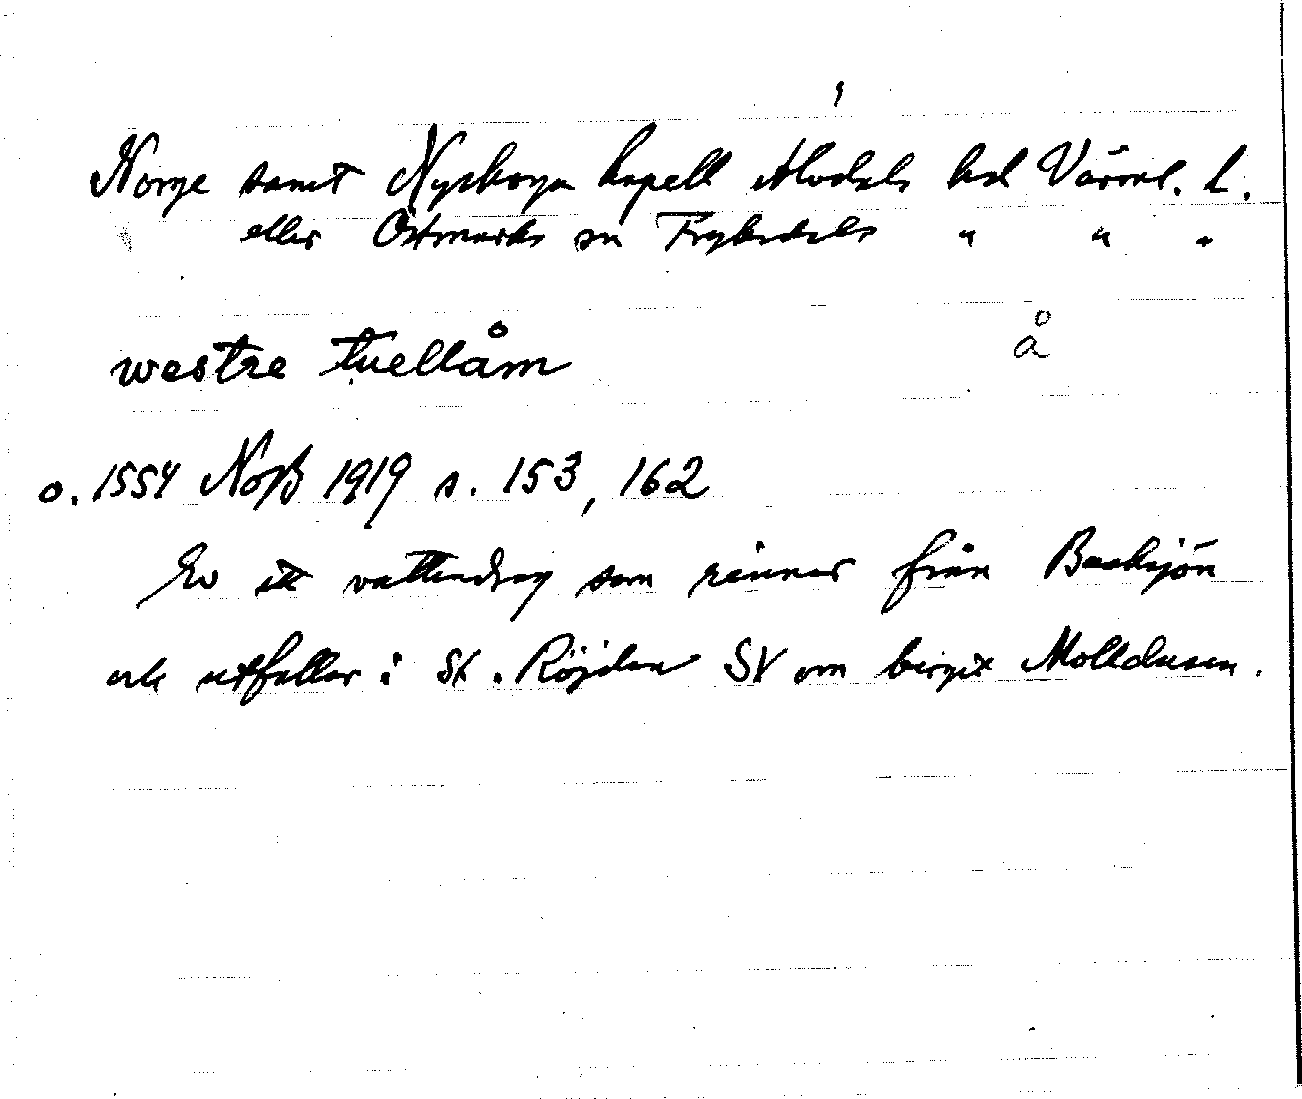 Norge samt Nyskoga kapell Älvdals hd Värml. L.
eller Östmarks sn Fryksdals " " "
westre tuellåm å
o. 1554 NoB 1919 s. 153, 162
Ev ett vattendrag som rinner från Baksjön
och utfaller i St. Röjden SV om berget Mollåsen.